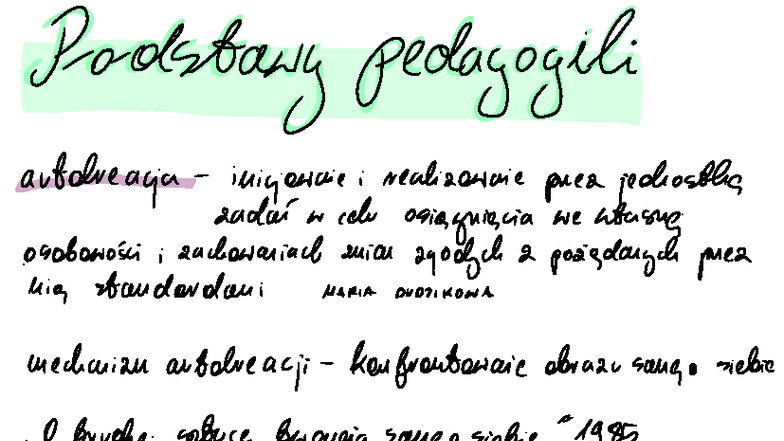 Podstawy pedagogiki
autokreacja – inicjowanie i realizowanie przez jednostkę
zadań w celu osiągnięcia we własnej
osobowości i zachowaniach zmian zgodnych z pożądanych przez
nią standardami MARIA DUDZIKOWA
mechanizm autokreacji – konfrontowanie obrazu samego siebie
„O trudnej sztuce tworzenia samego siebie" 1985